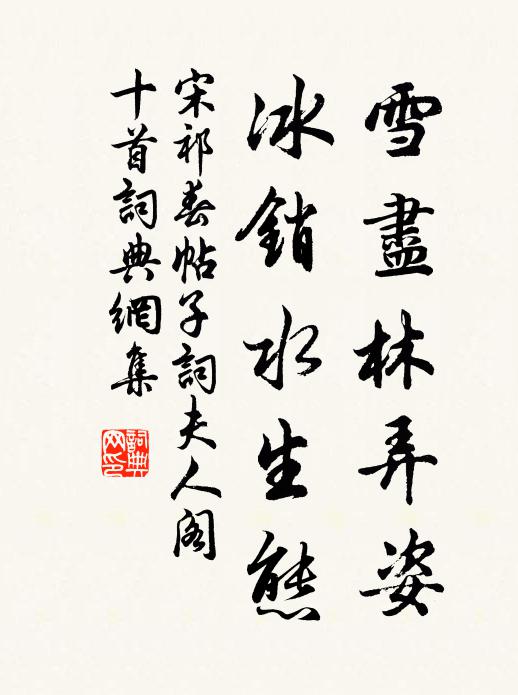 雪盡林弄姿
冰銷水生態
宋祁春帖子詞夫人阁
十首詞典網集
詞典网印